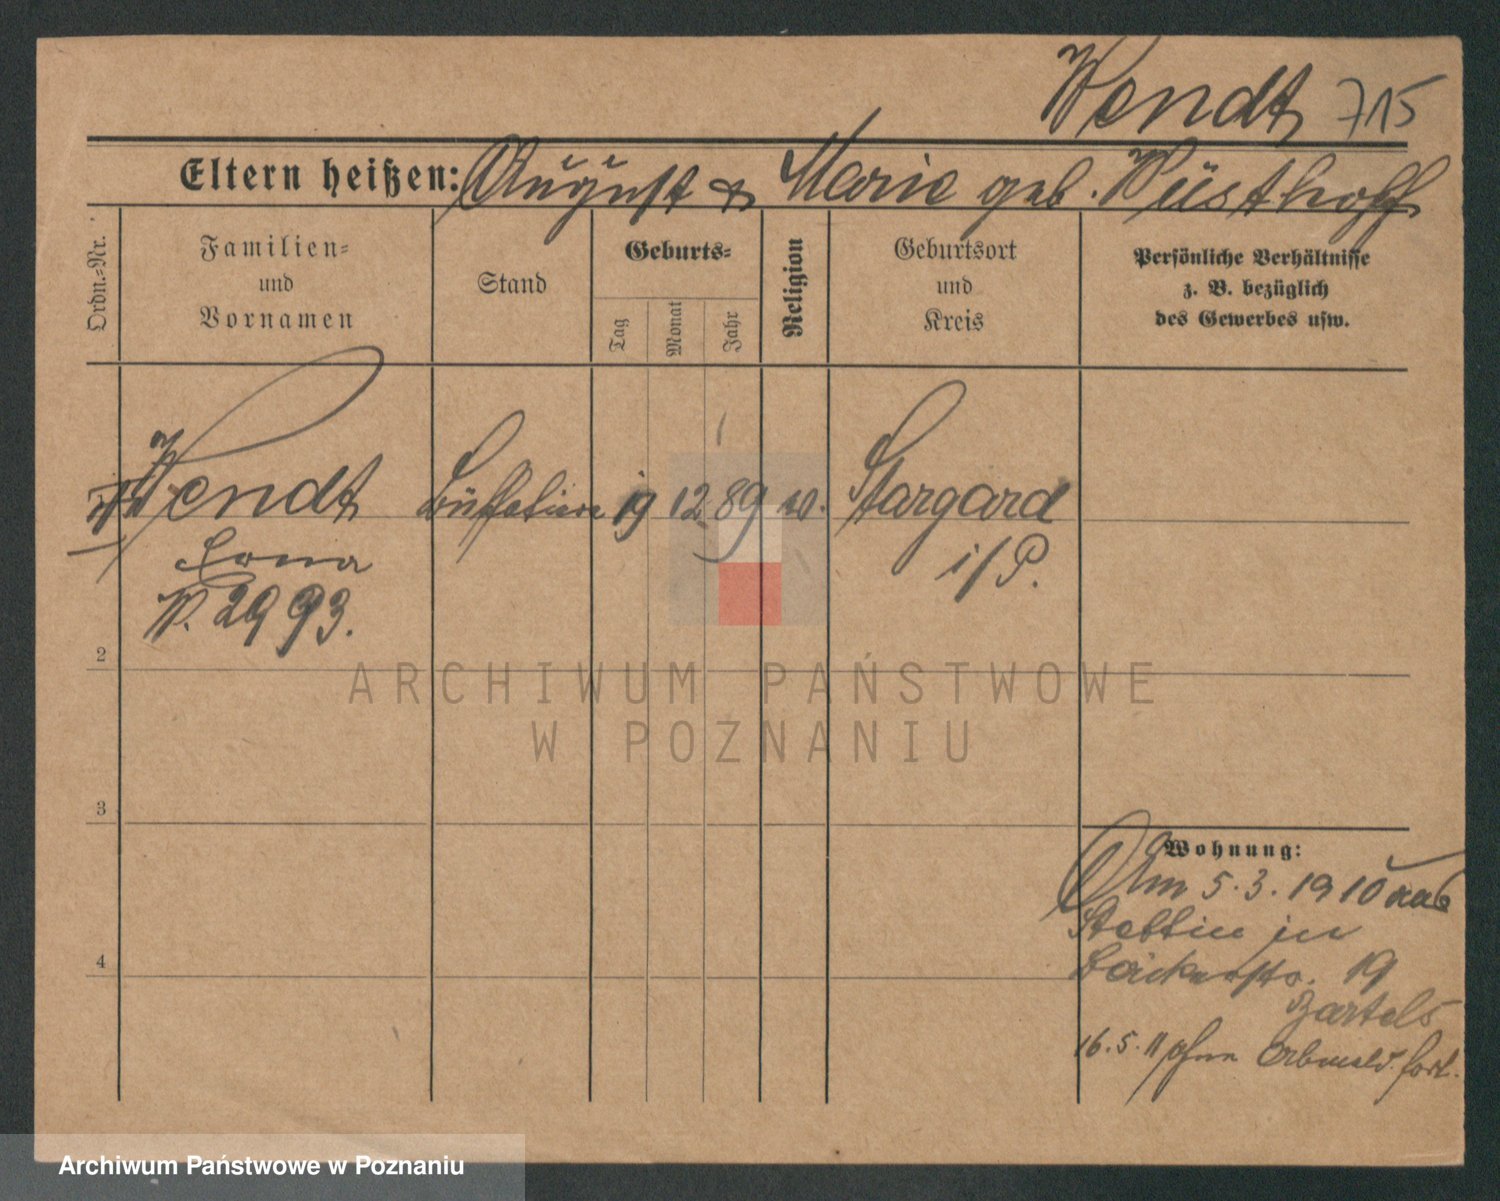 Wendt 715
Eltern heißen: August & Marie geb. Wüsthoff
Ordn.-Nr.
Familien-
und
Vornamen
Stand
Geburts-
Tag
Monat
Jahr
Religion
Geburtsort
und
Kreis
Persönliche Verhältnisse
z. B. bezüglich
des Gewerbes usw.
Wendt 19 12 89 Stargard
i/P.
2993.
2
3
4
ARCHIWUM PAŃSTWOWE
W POZNANIU
Wohnung:
Am 5.3.1910 aus
Stettin in
Bäckerstr. 19
Bartels
16.5.11 ohne Abmeld. fort.
Archiwum Państwowe w Poznaniu